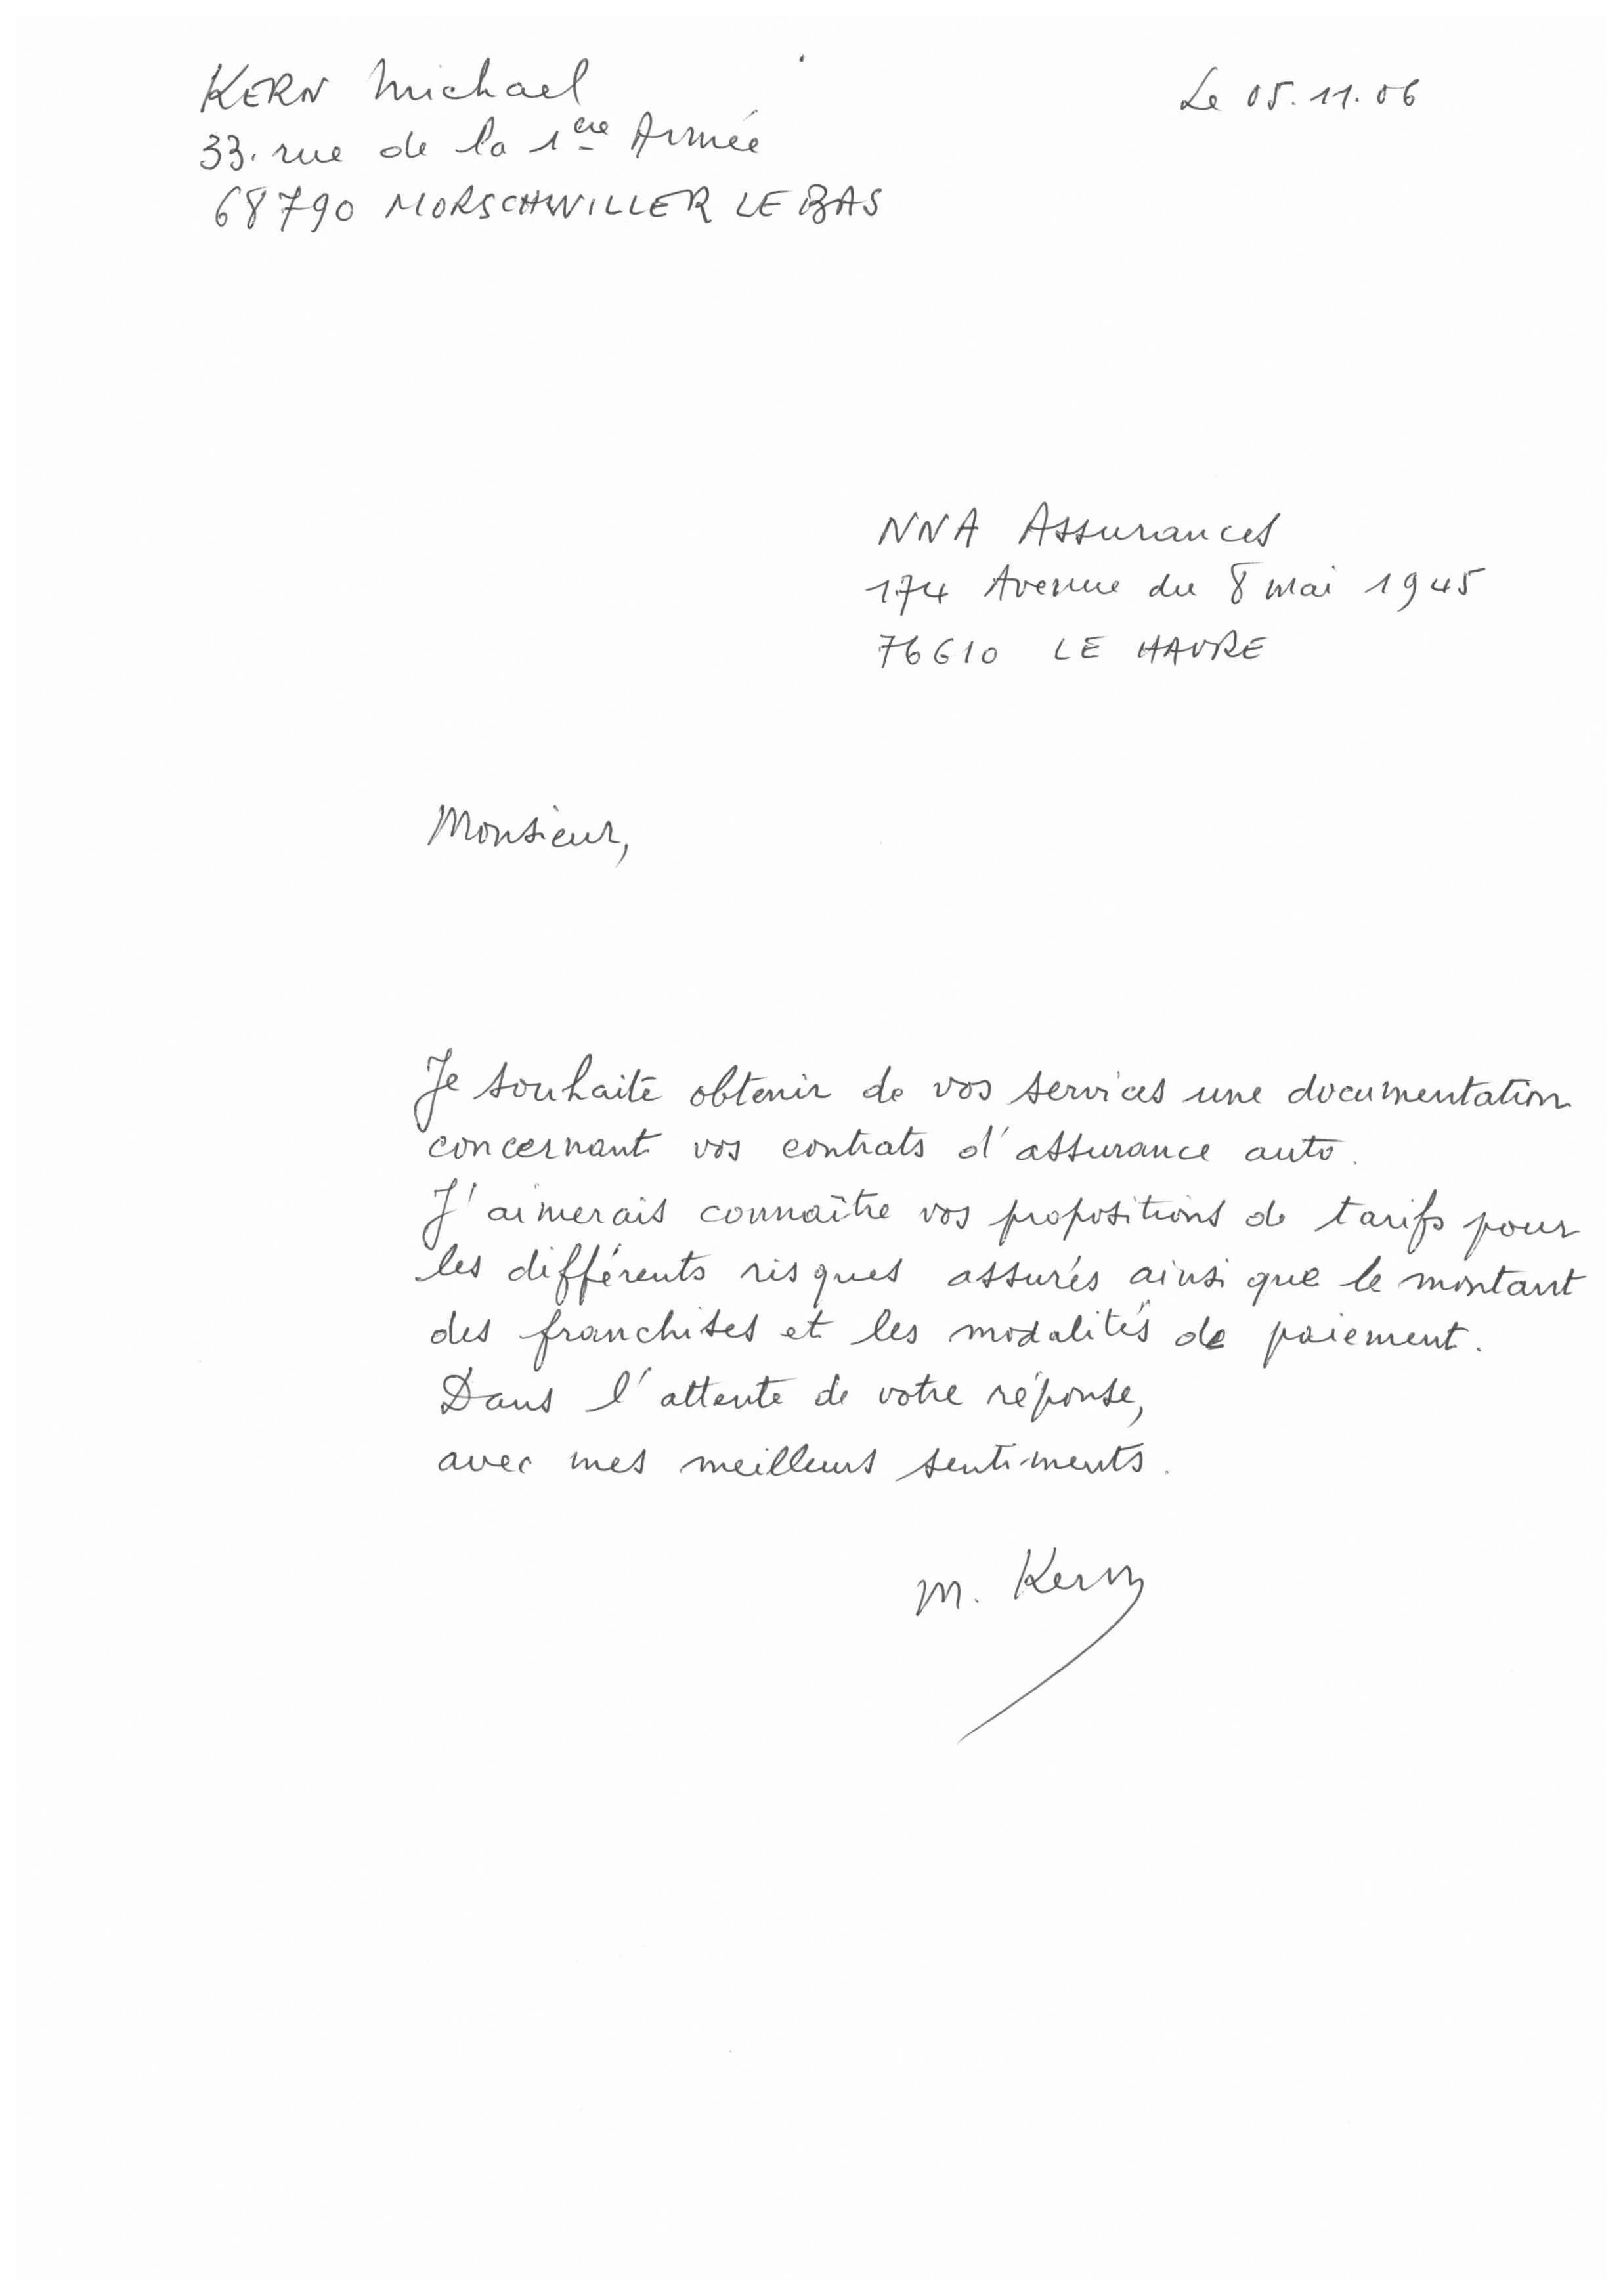 KERN Michael
Le 05.11.06
33. rue de la 1ère Armée
68790 MORSCHWILLER LE BAS
NNA Assurances
174 Avenue du 8 mai 1945
76610 LE HAVRE
Monsieur,
Je souhaite obtenir de vos services une documentation
concernant vos contrats d'assurance auto.
J'aimerais connaître vos propositions de tarifs pour
les différents risques assurés ainsi que le montant
des franchises et les modalités de paiement.
Dans l'attente de votre réponse,
avec mes meilleurs sentiments.
M. Kern